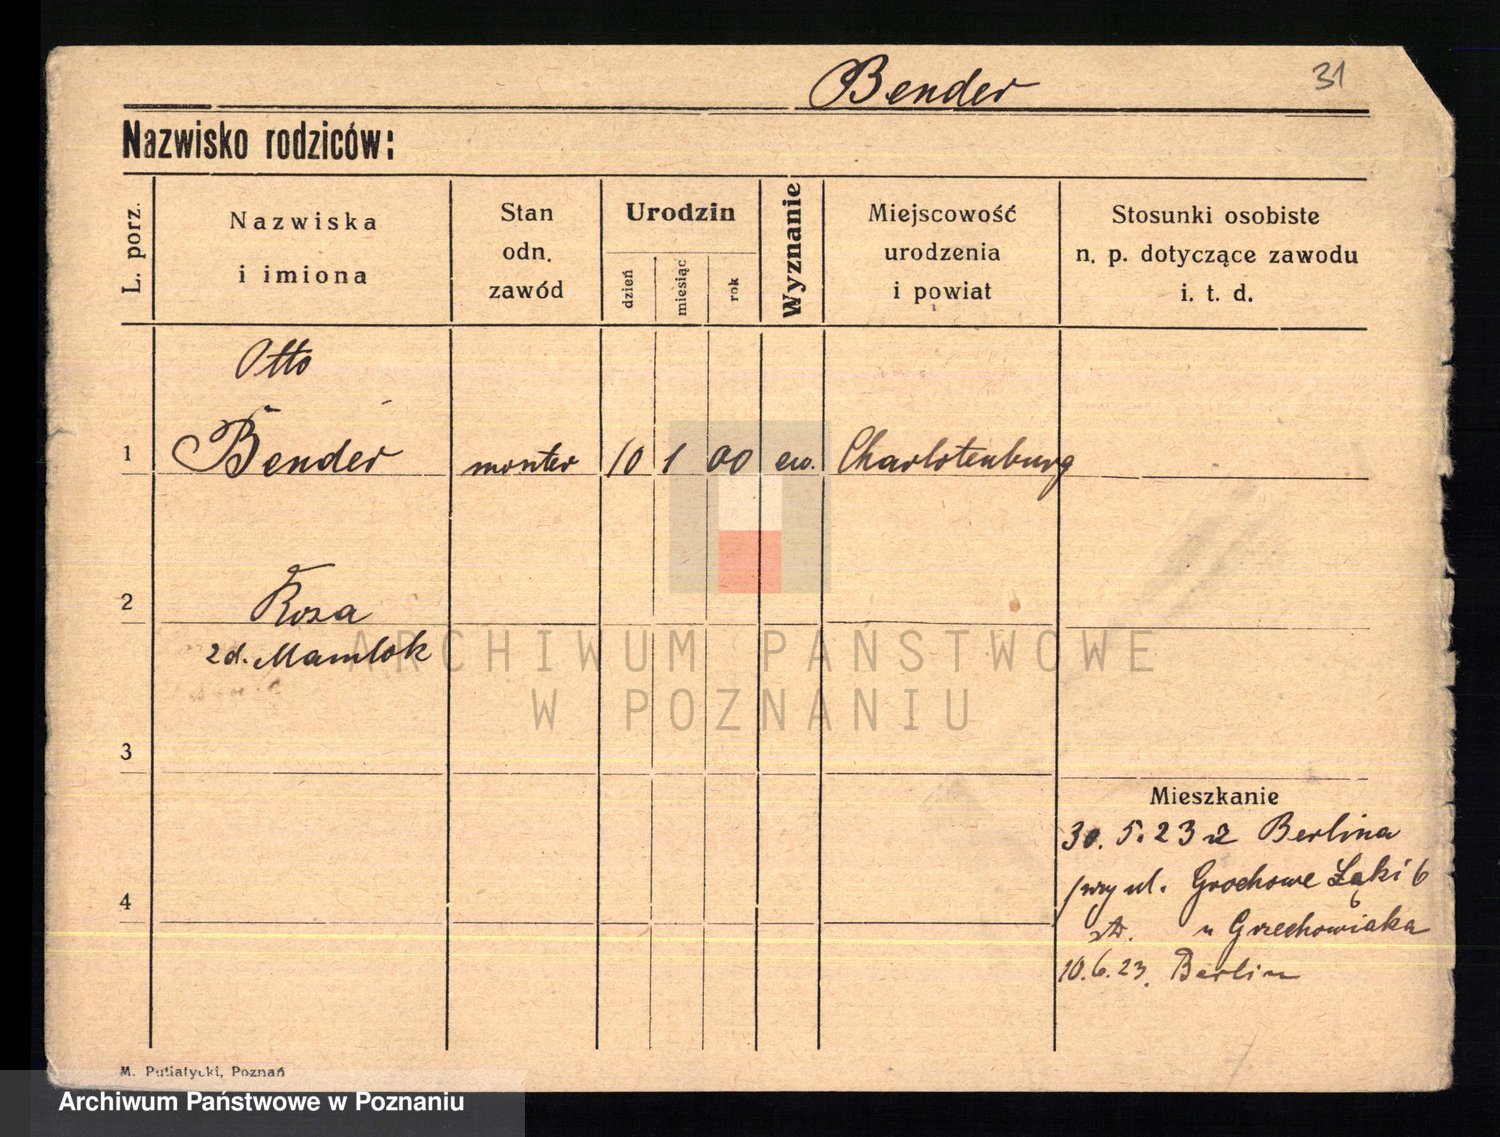 Bender
31
Nazwisko rodziców:
L. porz.
Nazwiska
i imiona
Stan
odn.
zawód
Urodzin
dzień
miesiąc
rok
Wyznanie
Miejscowość
urodzenia
i powiat
Stosunki osobiste
n. p. dotyczące zawodu
i. t. d.
Otto
1 Bender monter 10 1 00 ew. Charlotenburg
2 Roza
zd. Mamlok
3
4
Mieszkanie
30. 5. 23 z Berlina
przy ul. Grochowe Łąki 6
u Grzechowiaka
10. 6. 23. Berlin
ARCHIWUM PAŃSTWOWE
W POZNANIU
M. Putiatycki, Poznań
Archiwum Państwowe w Poznaniu